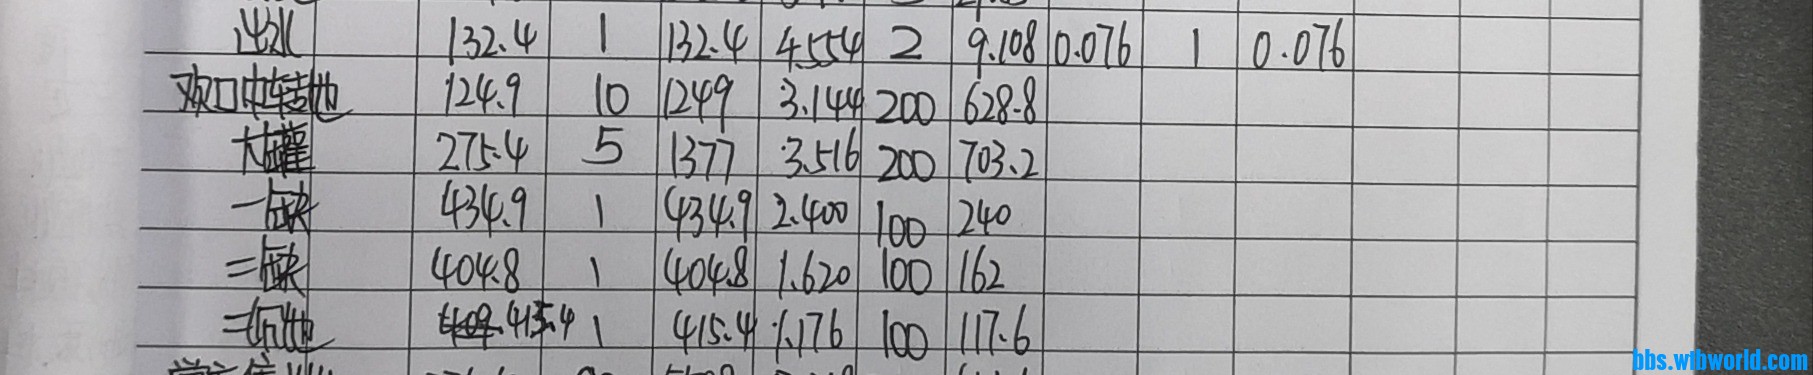 出水 132.4 1 132.4 4.554 2 9.108 0.076 1 0.076
中转池 124.9 10 1249 3.144 200 628.8
大罐 275.4 5 1377 3.516 200 703.2
一缺 434.9 1 434.9 2.400 100 240
二缺 404.8 1 404.8 1.620 100 162
415.4 1 415.4 1.176 100 117.6
bbs.wibworld.com